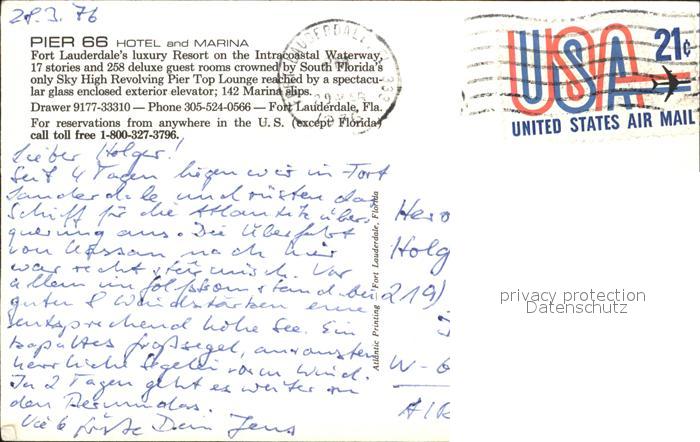 28.3.76
PIER 66 HOTEL and MARINA
Fort Lauderdale's luxury Resort on the Intracoastal Waterway,
17 stories and 258 deluxe guest rooms crowned by South Florida's
only Sky High Revolving Pier Top Lounge reached by a spectacu-
lar glass enclosed exterior elevator; 142 Marina slips.
Drawer 9177-33310 — Phone 305-524-0566 — Fort Lauderdale, Fla.
For reservations from anywhere in the U. S. (except Florida)
call toll free 1-800-327-3796.
USA 21¢
UNITED STATES AIR MAIL
Lieber Holger!
Seit 4 Tagen liegen wir in Fort
Lauderdale und rüsten das
Schiff für die Atlantik über-
querung aus. Die Überfahrt
von Nassau nach hier
war recht stürmisch. Vor
allem im Golfstrom stand bei
guten 8 Windstärken eine
entsprechend hohe See. Ein
kaputtes Großsegel, ansonsten
herrliche Segelei vorm Wind.
In 2 Tagen geht es weiter zu
den Bermudas.
Viele Grüße Dein Jens
Atlantic Printing, Fort Lauderdale, Florida
Herr
Holg
219)
W-6
privacy protection
Datenschutz